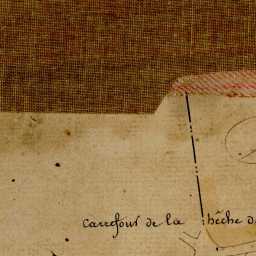 Carrefour de la hêche d